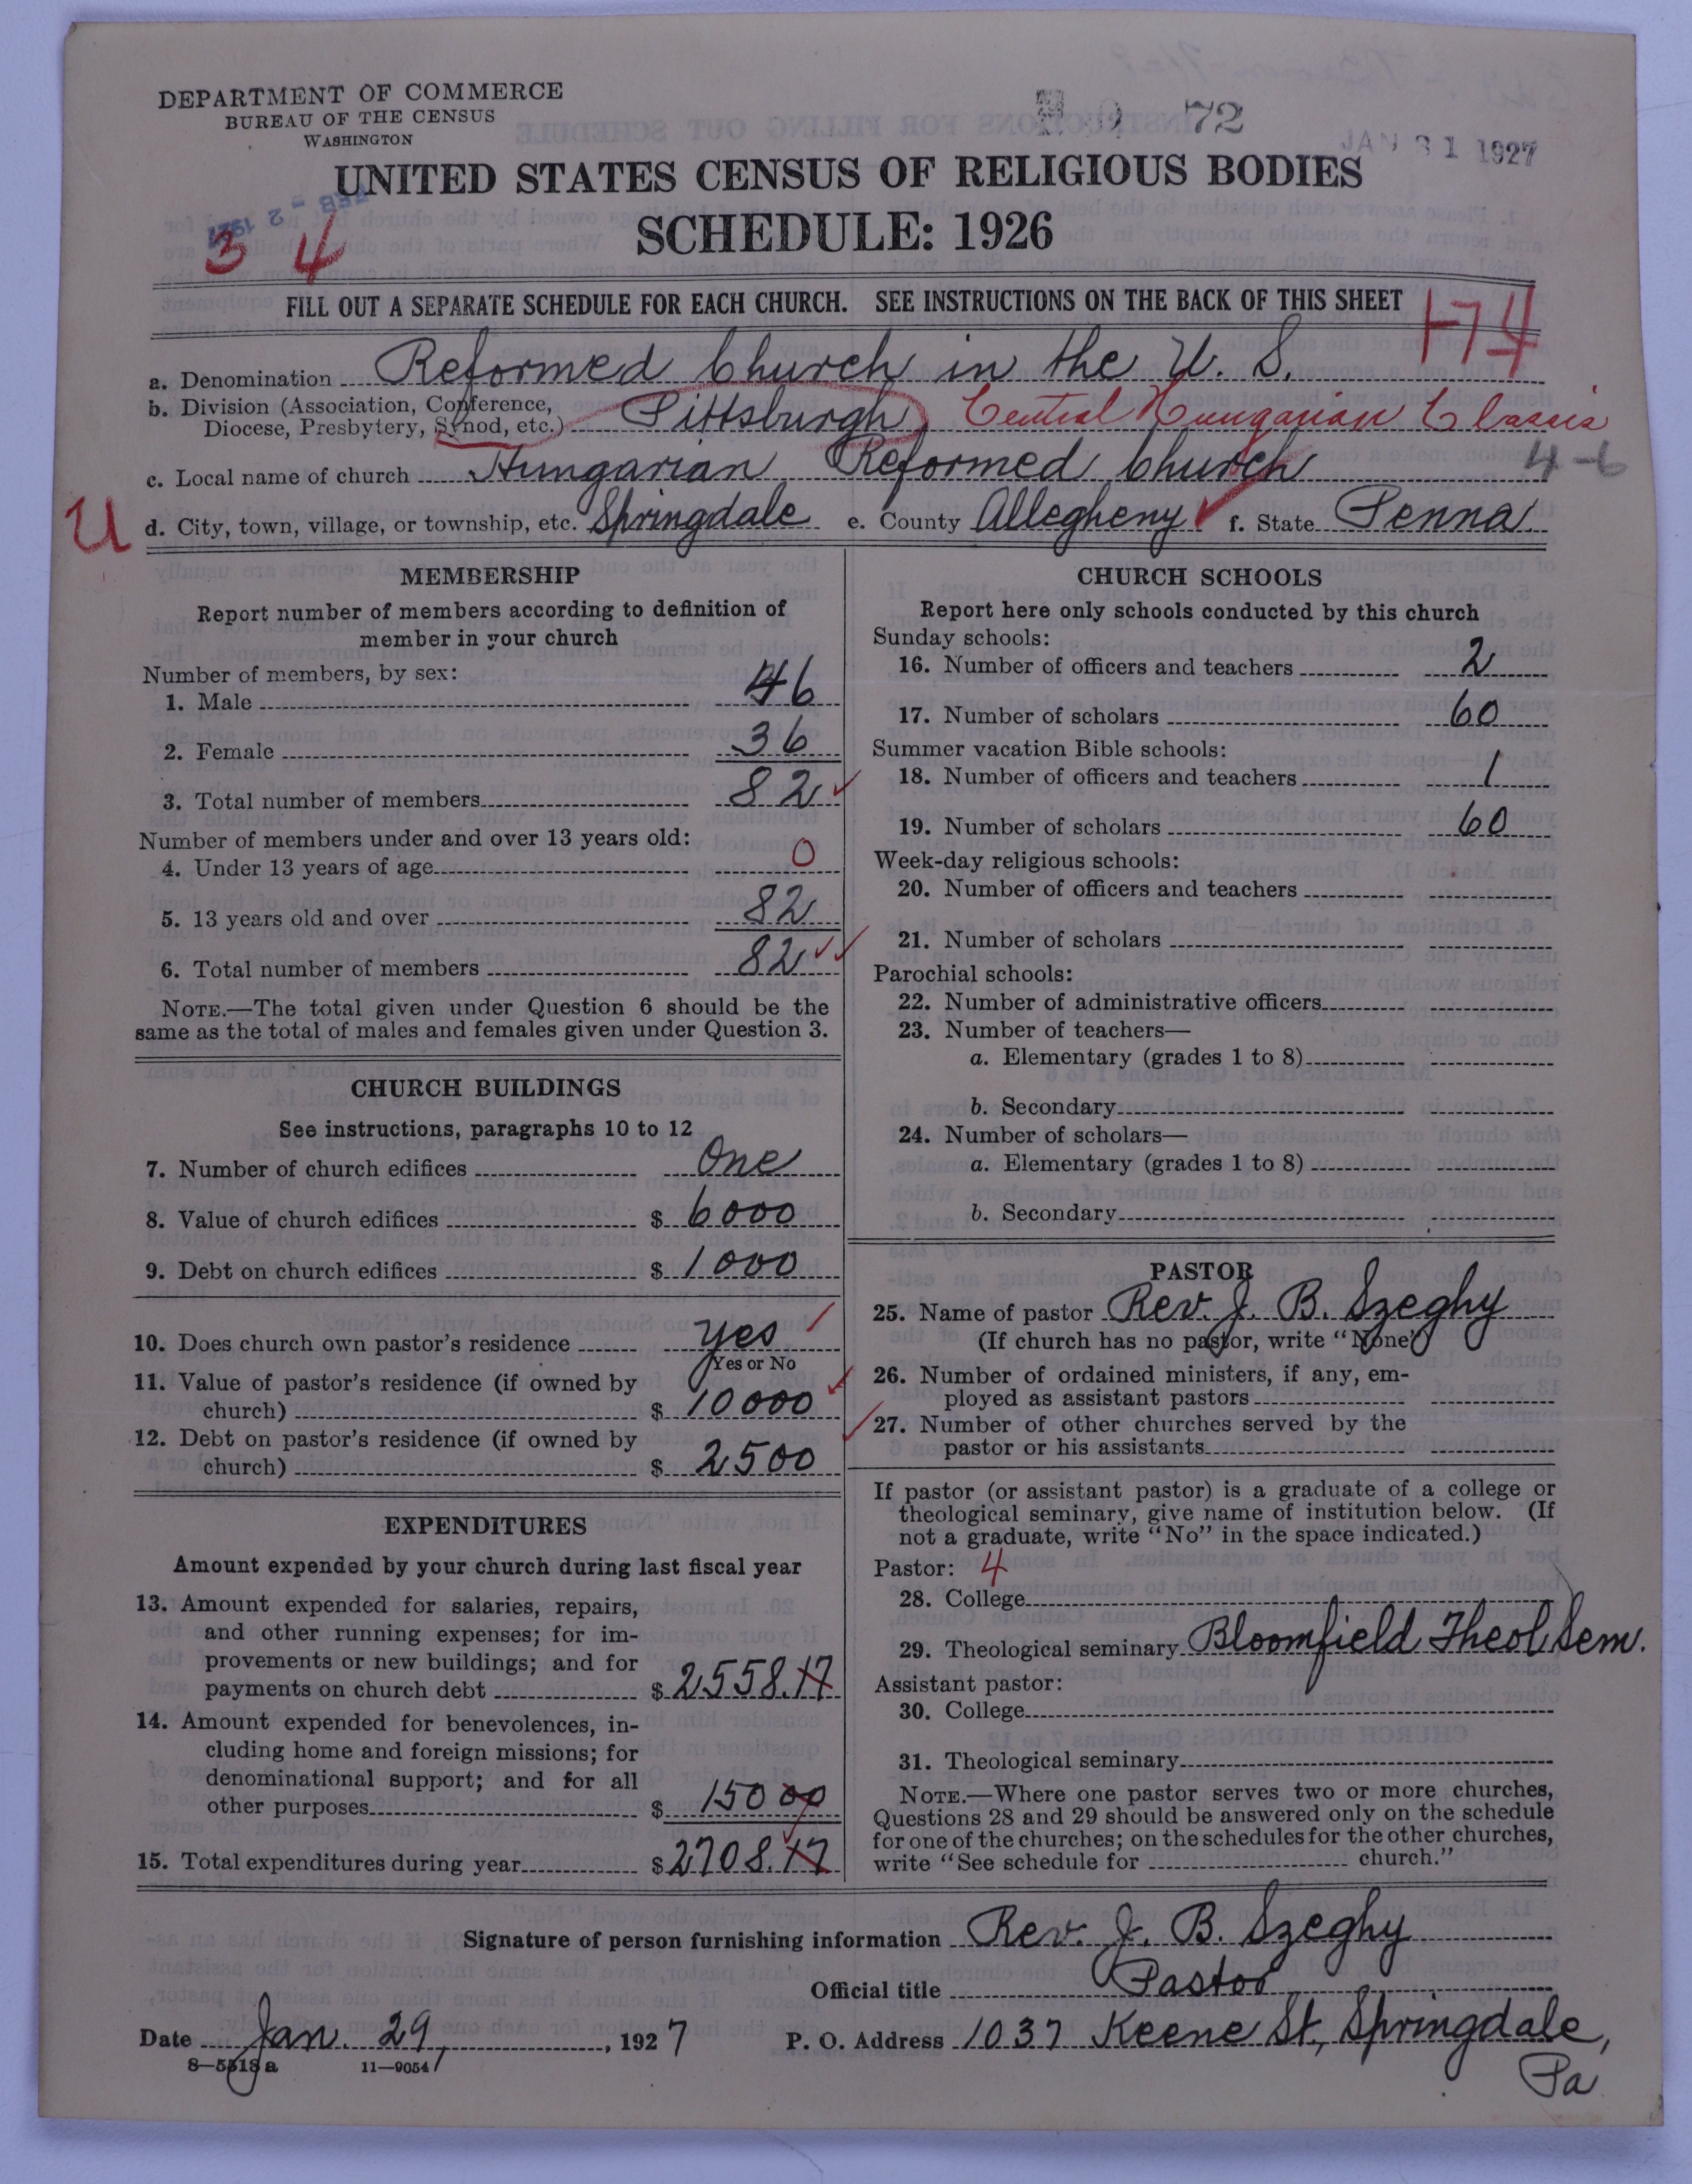 DEPARTMENT OF COMMERCE
BUREAU OF THE CENSUS
WASHINGTON
72
JAN 31 1927
UNITED STATES CENSUS OF RELIGIOUS BODIES
FEB - 2 1927
SCHEDULE: 1926
3 4
FILL OUT A SEPARATE SCHEDULE FOR EACH CHURCH. SEE INSTRUCTIONS ON THE BACK OF THIS SHEET
1-74
a. Denomination Reformed Church in the U. S.
b. Division (Association, Conference, Diocese, Presbytery, Synod, etc.) Pittsburgh Central Hungarian Classis
c. Local name of church Hungarian Reformed Church 4-6
U d. City, town, village, or township, etc. Springdale e. County Allegheny f. State Penna
MEMBERSHIP
Report number of members according to definition of
member in your church
Number of members, by sex:
1. Male 46
2. Female 36
3. Total number of members 82
Number of members under and over 13 years old:
4. Under 13 years of age 0
5. 13 years old and over 82
6. Total number of members 82
NOTE.—The total given under Question 6 should be the
same as the total of males and females given under Question 3.
CHURCH BUILDINGS
See instructions, paragraphs 10 to 12
7. Number of church edifices One
8. Value of church edifices $ 6000
9. Debt on church edifices $ 1000
10. Does church own pastor's residence yes
Yes or No
11. Value of pastor's residence (if owned by
church) $ 10000
12. Debt on pastor's residence (if owned by
church) $ 2500
EXPENDITURES
Amount expended by your church during last fiscal year
13. Amount expended for salaries, repairs,
and other running expenses; for im-
provements or new buildings; and for
payments on church debt $ 2558.17
14. Amount expended for benevolences, in-
cluding home and foreign missions; for
denominational support; and for all
other purposes $ 150 00
15. Total expenditures during year $ 2708.17
CHURCH SCHOOLS
Report here only schools conducted by this church
Sunday schools:
16. Number of officers and teachers 2
17. Number of scholars 60
Summer vacation Bible schools:
18. Number of officers and teachers 1
19. Number of scholars 60
Week-day religious schools:
20. Number of officers and teachers
21. Number of scholars
Parochial schools:
22. Number of administrative officers
23. Number of teachers—
a. Elementary (grades 1 to 8)
b. Secondary
24. Number of scholars—
a. Elementary (grades 1 to 8)
b. Secondary
PASTOR
25. Name of pastor Rev. J. B. Szeghy
(If church has no pastor, write "None")
26. Number of ordained ministers, if any, em-
ployed as assistant pastors
27. Number of other churches served by the
pastor or his assistants
If pastor (or assistant pastor) is a graduate of a college or
theological seminary, give name of institution below. (If
not a graduate, write "No" in the space indicated.)
Pastor: 4
28. College
29. Theological seminary Bloomfield Theol. Sem.
Assistant pastor:
30. College
31. Theological seminary
NOTE.—Where one pastor serves two or more churches,
Questions 28 and 29 should be answered only on the schedule
for one of the churches; on the schedules for the other churches,
write "See schedule for church."
Signature of person furnishing information Rev. J. B. Szeghy
Official title Pastor
Date Jan. 29, 1927 P. O. Address 1037 Keene St., Springdale,
Pa
8—5518 a 11—9054